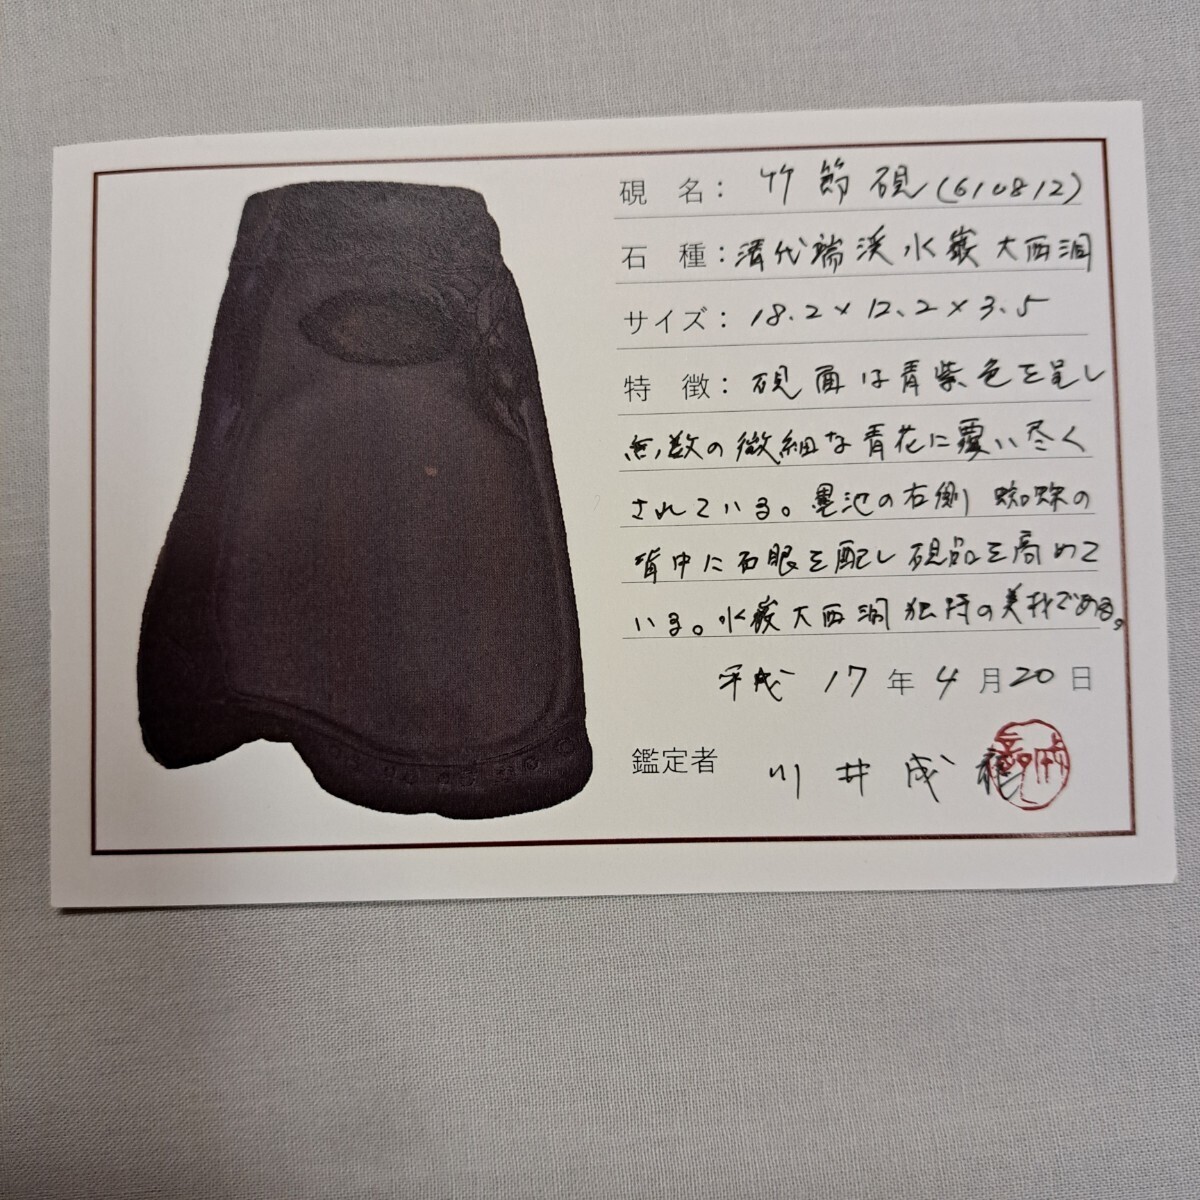 硯 名： 竹節硯(610812)
石 種： 清代端渓水巌大西洞
サイズ： 18.2×12.2×3.5
特 徴： 硯面は青紫色を呈し
無数の微細な青花に覆い尽く
されている。墨池の右側 蜘蛛の
背中に石眼を配し硯品を高めて
いる。水巌大西洞独特の美材である。
平成 17 年 4 月 20 日
鑑定者 川井成